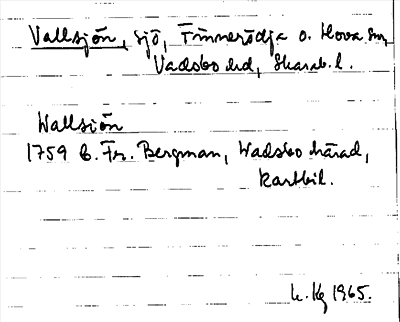 Vallsjön, sjö, Finnerödja o. Hova sn,
Vadsbo hd, Skarab. l.
Wallsiön
1759 C. Fr. Bergman, Wadsbo härad,
kartbil.
L. Kg 1965.